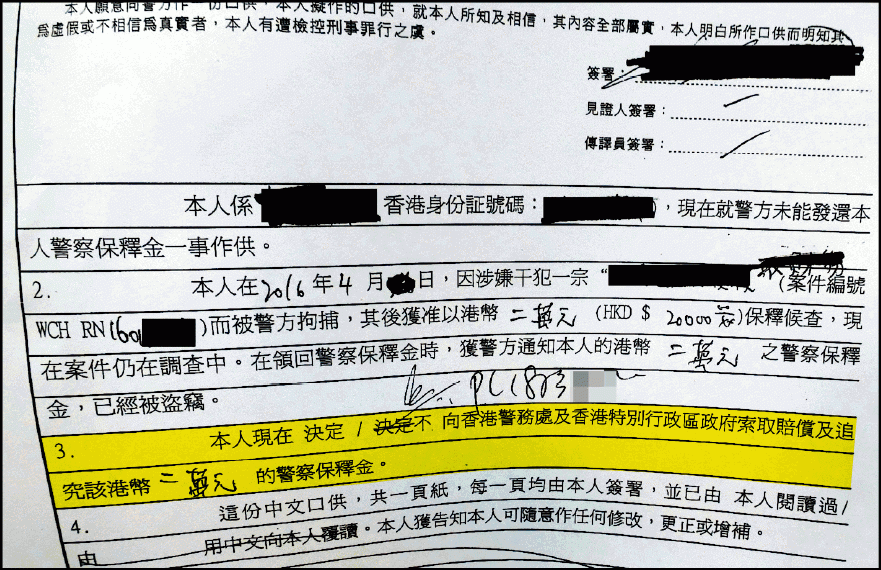 本人願意向警方作一份口供，本人擬作的口供，就本人所知及相信，其內容全部屬實，本人明白所作口供而明知其
為虛假或不相信為真實者，本人有遭檢控刑事罪行之虞。
簽署：
見證人簽署：
傳譯員簽署：
本人係 香港身份証號碼： ，現在就警方未能發還本
人警察保釋金一事作供。
2. 本人在2016年4月 日，因涉嫌干犯一宗 “ (案件編號
WCH RN(160 )而被警方拘捕，其後獲准以港幣 二萬元 (HKD $ 20000 )保釋候查，現
在案件仍在調查中。在領回警察保釋金時，獲警方通知本人的港幣 二萬元 之警察保釋
金，已經被盜竊。
PC 1873
3. 本人現在 決定 / 決定不 向香港警務處及香港特別行政區政府索取賠償及追
究該港幣 二萬元 的警察保釋金。
4. 這份中文口供，共一頁紙，每一頁均由本人簽署，並已由 本人閱讀過/
由 用中文向本人覆讀。本人獲告知本人可隨意作任何修改，更正或增補。